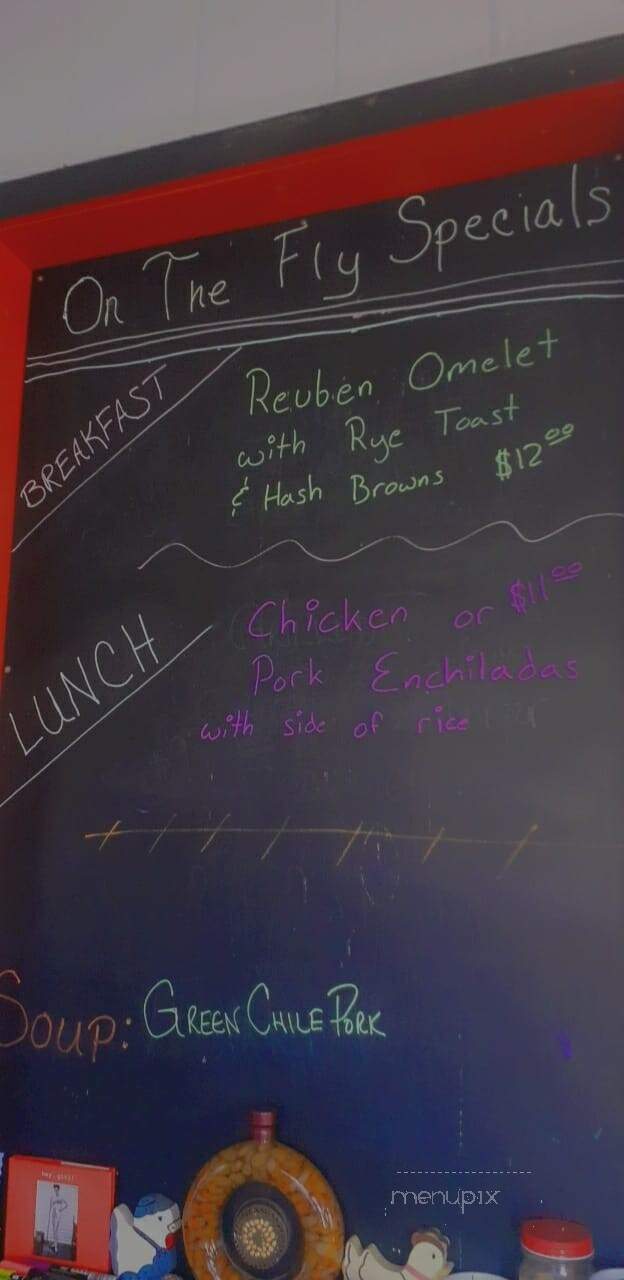 On The Fly Specials
BREAKFAST
Reuben Omelet
with Rye Toast
& Hash Browns $12.00
LUNCH
Chicken or $11.00
Pork Enchiladas
with side of rice
Soup: GREEN CHILE PORK
hey, girl!
menupix